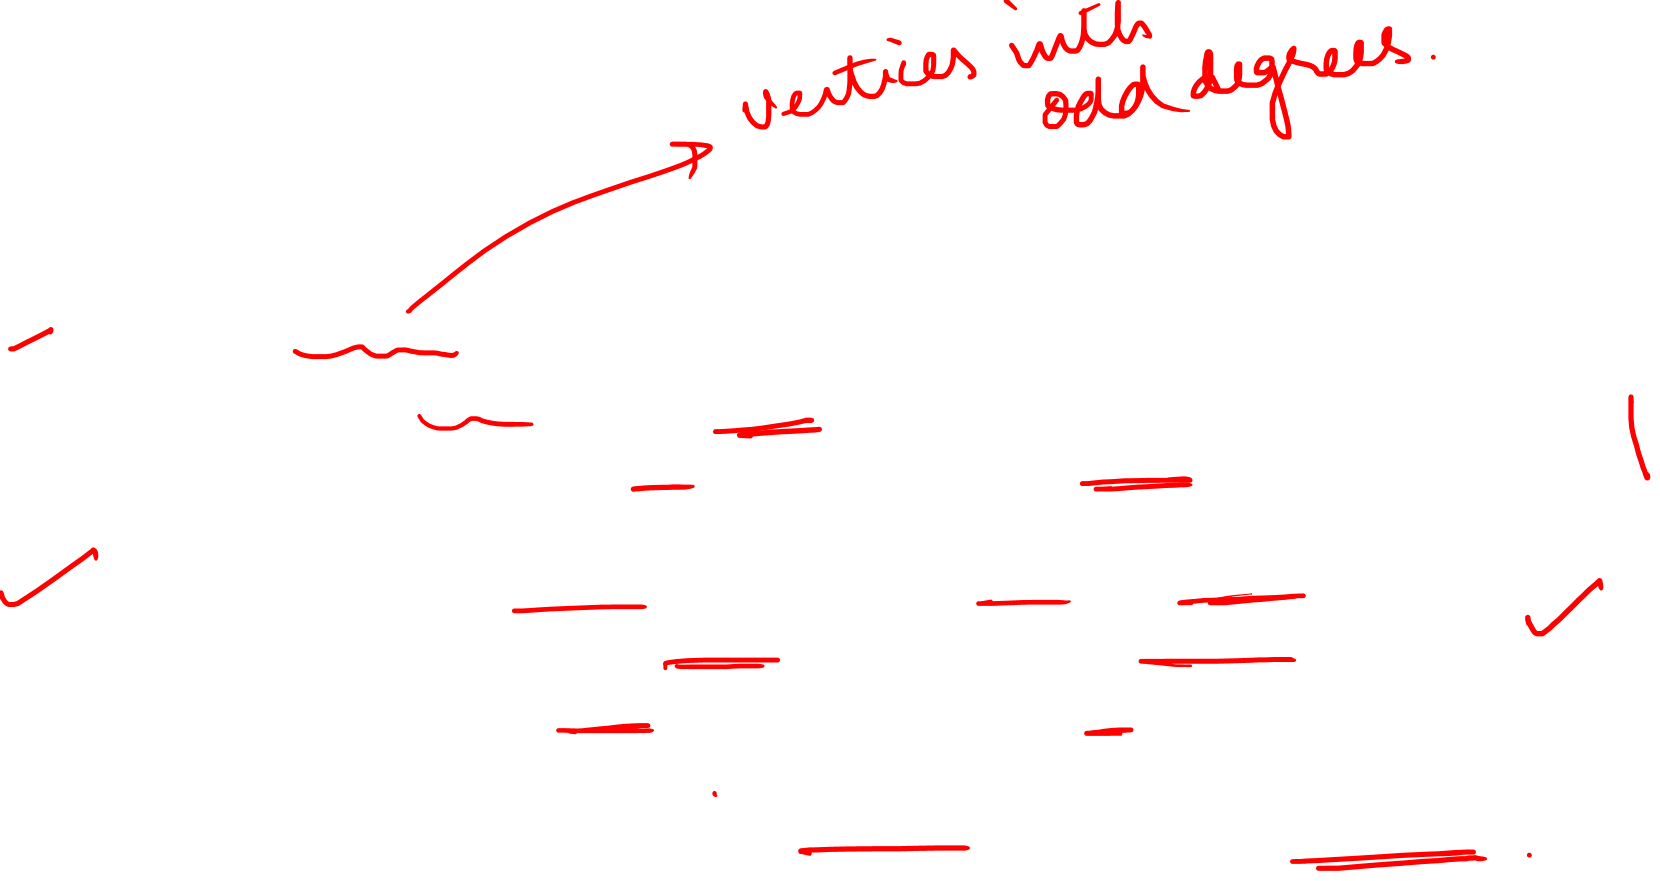 verties with
odd degrees.